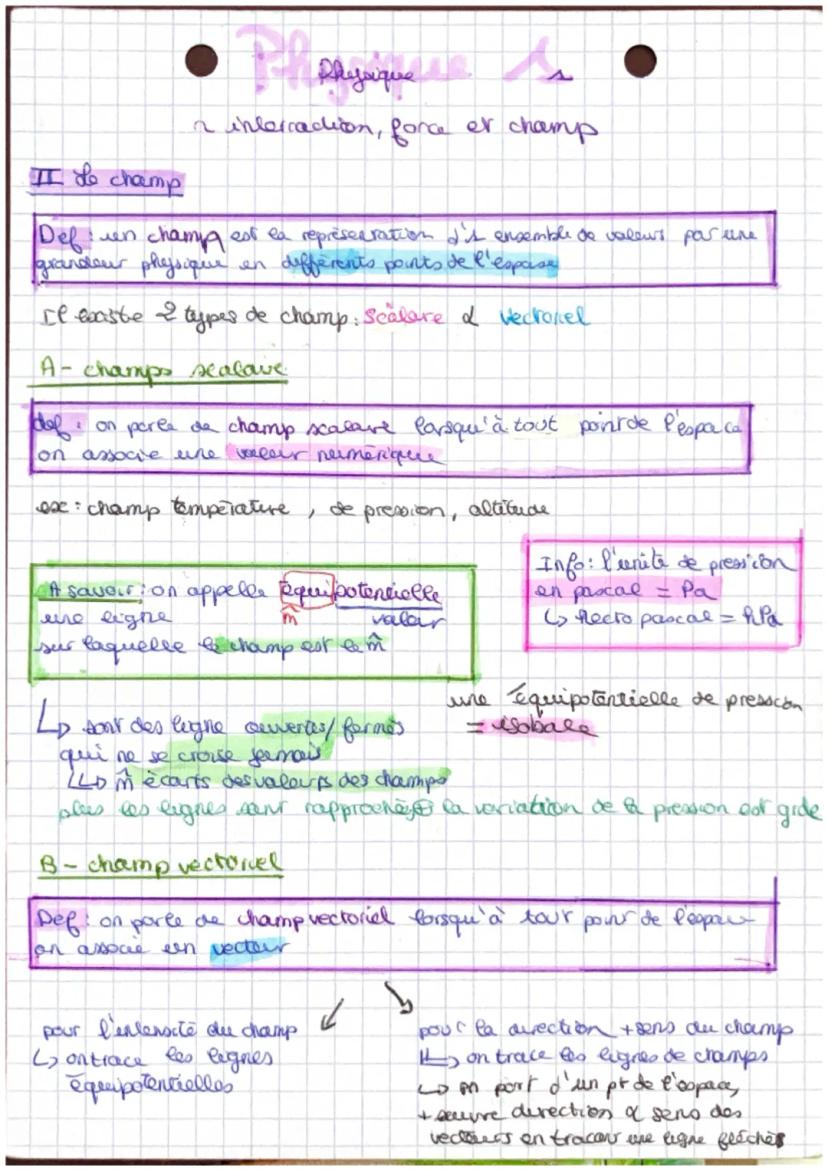 Physique 1
Physique
~ interraction, force et champ
II Le champ
Def : un champ est la représentation d'1 ensemble de valeurs par une
grandeur physique en différents points de l'espase
Il existe 2 types de champ : Scalare & vectoriel
A - champs scalaire
def : on parle de champ scalaire lorsqu'à tout point de l'espace
on associe une valeur numérique
ex : champ température, de pression, altitude
Info : l'unité de pression
en pascal = Pa
↳ Hecto pascal = hPa
A savoir : on appelle équipotentielle
une ligne m̂ valeur
sur laquelle le champ est le m̂
une équipotentielle de pression
= isobare
↳ sont des ligne ouvertes/fermés
qui ne se croise jamais
↳ m̂ écarts des valeurs des champs
plus les lignes sont rapprochés ⊕ la variation de la pression est grde
B - champ vectoriel
Def : on parle de champ vectoriel lorsqu'à tout point de l'espace
on associe un vecteur
pour l'intensité du champ
↳ on trace les lignes
équipotentielles
pour la direction + sens du champ
↳ on trace les lignes de champs
↳ on part d'un pt de l'espace,
+ suivre direction & sens des
vecteurs en tracant une ligne fléchés